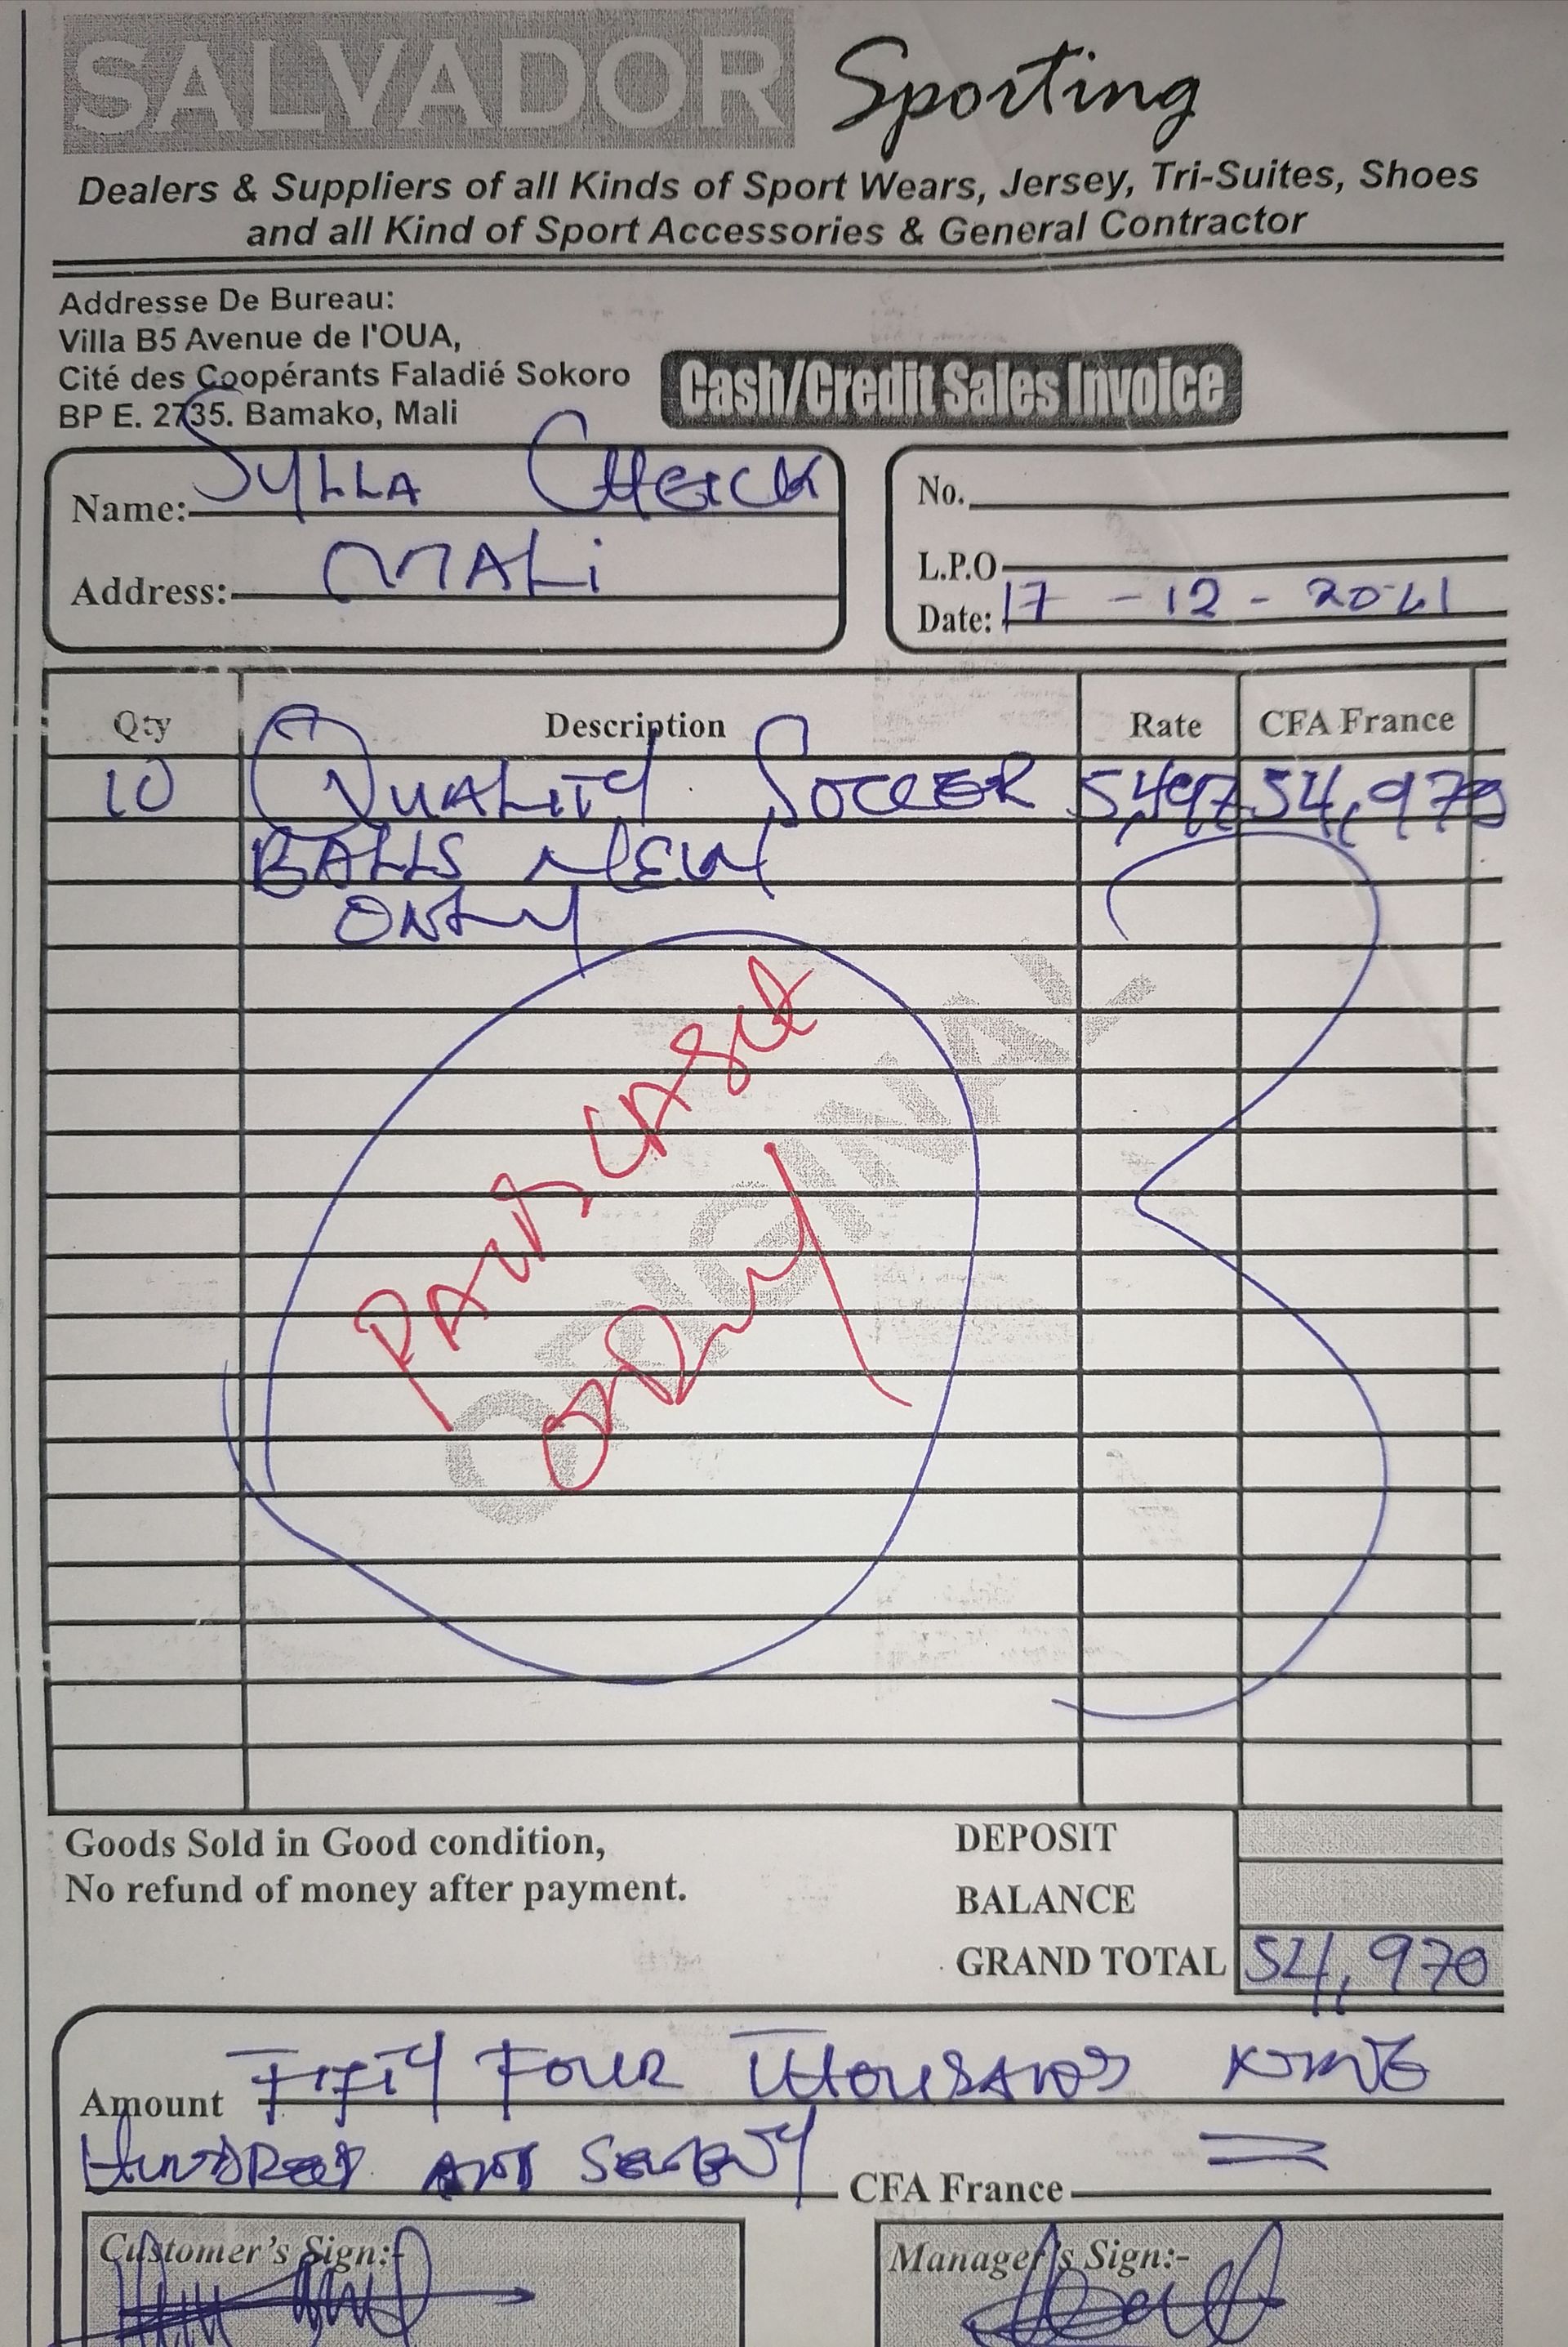 SALVADOR Sporting
Dealers & Suppliers of all Kinds of Sport Wears, Jersey, Tri-Suites, Shoes
and all Kind of Sport Accessories & General Contractor
Addresse De Bureau:
Villa B5 Avenue de l'OUA,
Cité des Coopérants Faladié Sokoro
BP E. 2735. Bamako, Mali
Cash/Credit Sales Invoice
Name: SYLLA CHEICK
Address: MALi
No.
L.P.O
Date: 17 - 12 - 2021
Qty Description Rate CFA France
10 QUALITY SOCCER 5,497 54,970
BALLS NEW
ONLY
ORIGINAL
PAID CASH
ONLY
Goods Sold in Good condition,
No refund of money after payment.
DEPOSIT
BALANCE
GRAND TOTAL 54,970
Amount FIFTY FOUR THOUSAND NINE
HUNDRED AND SEVENTY CFA France =
Customer's Sign:-
Manager's Sign:-